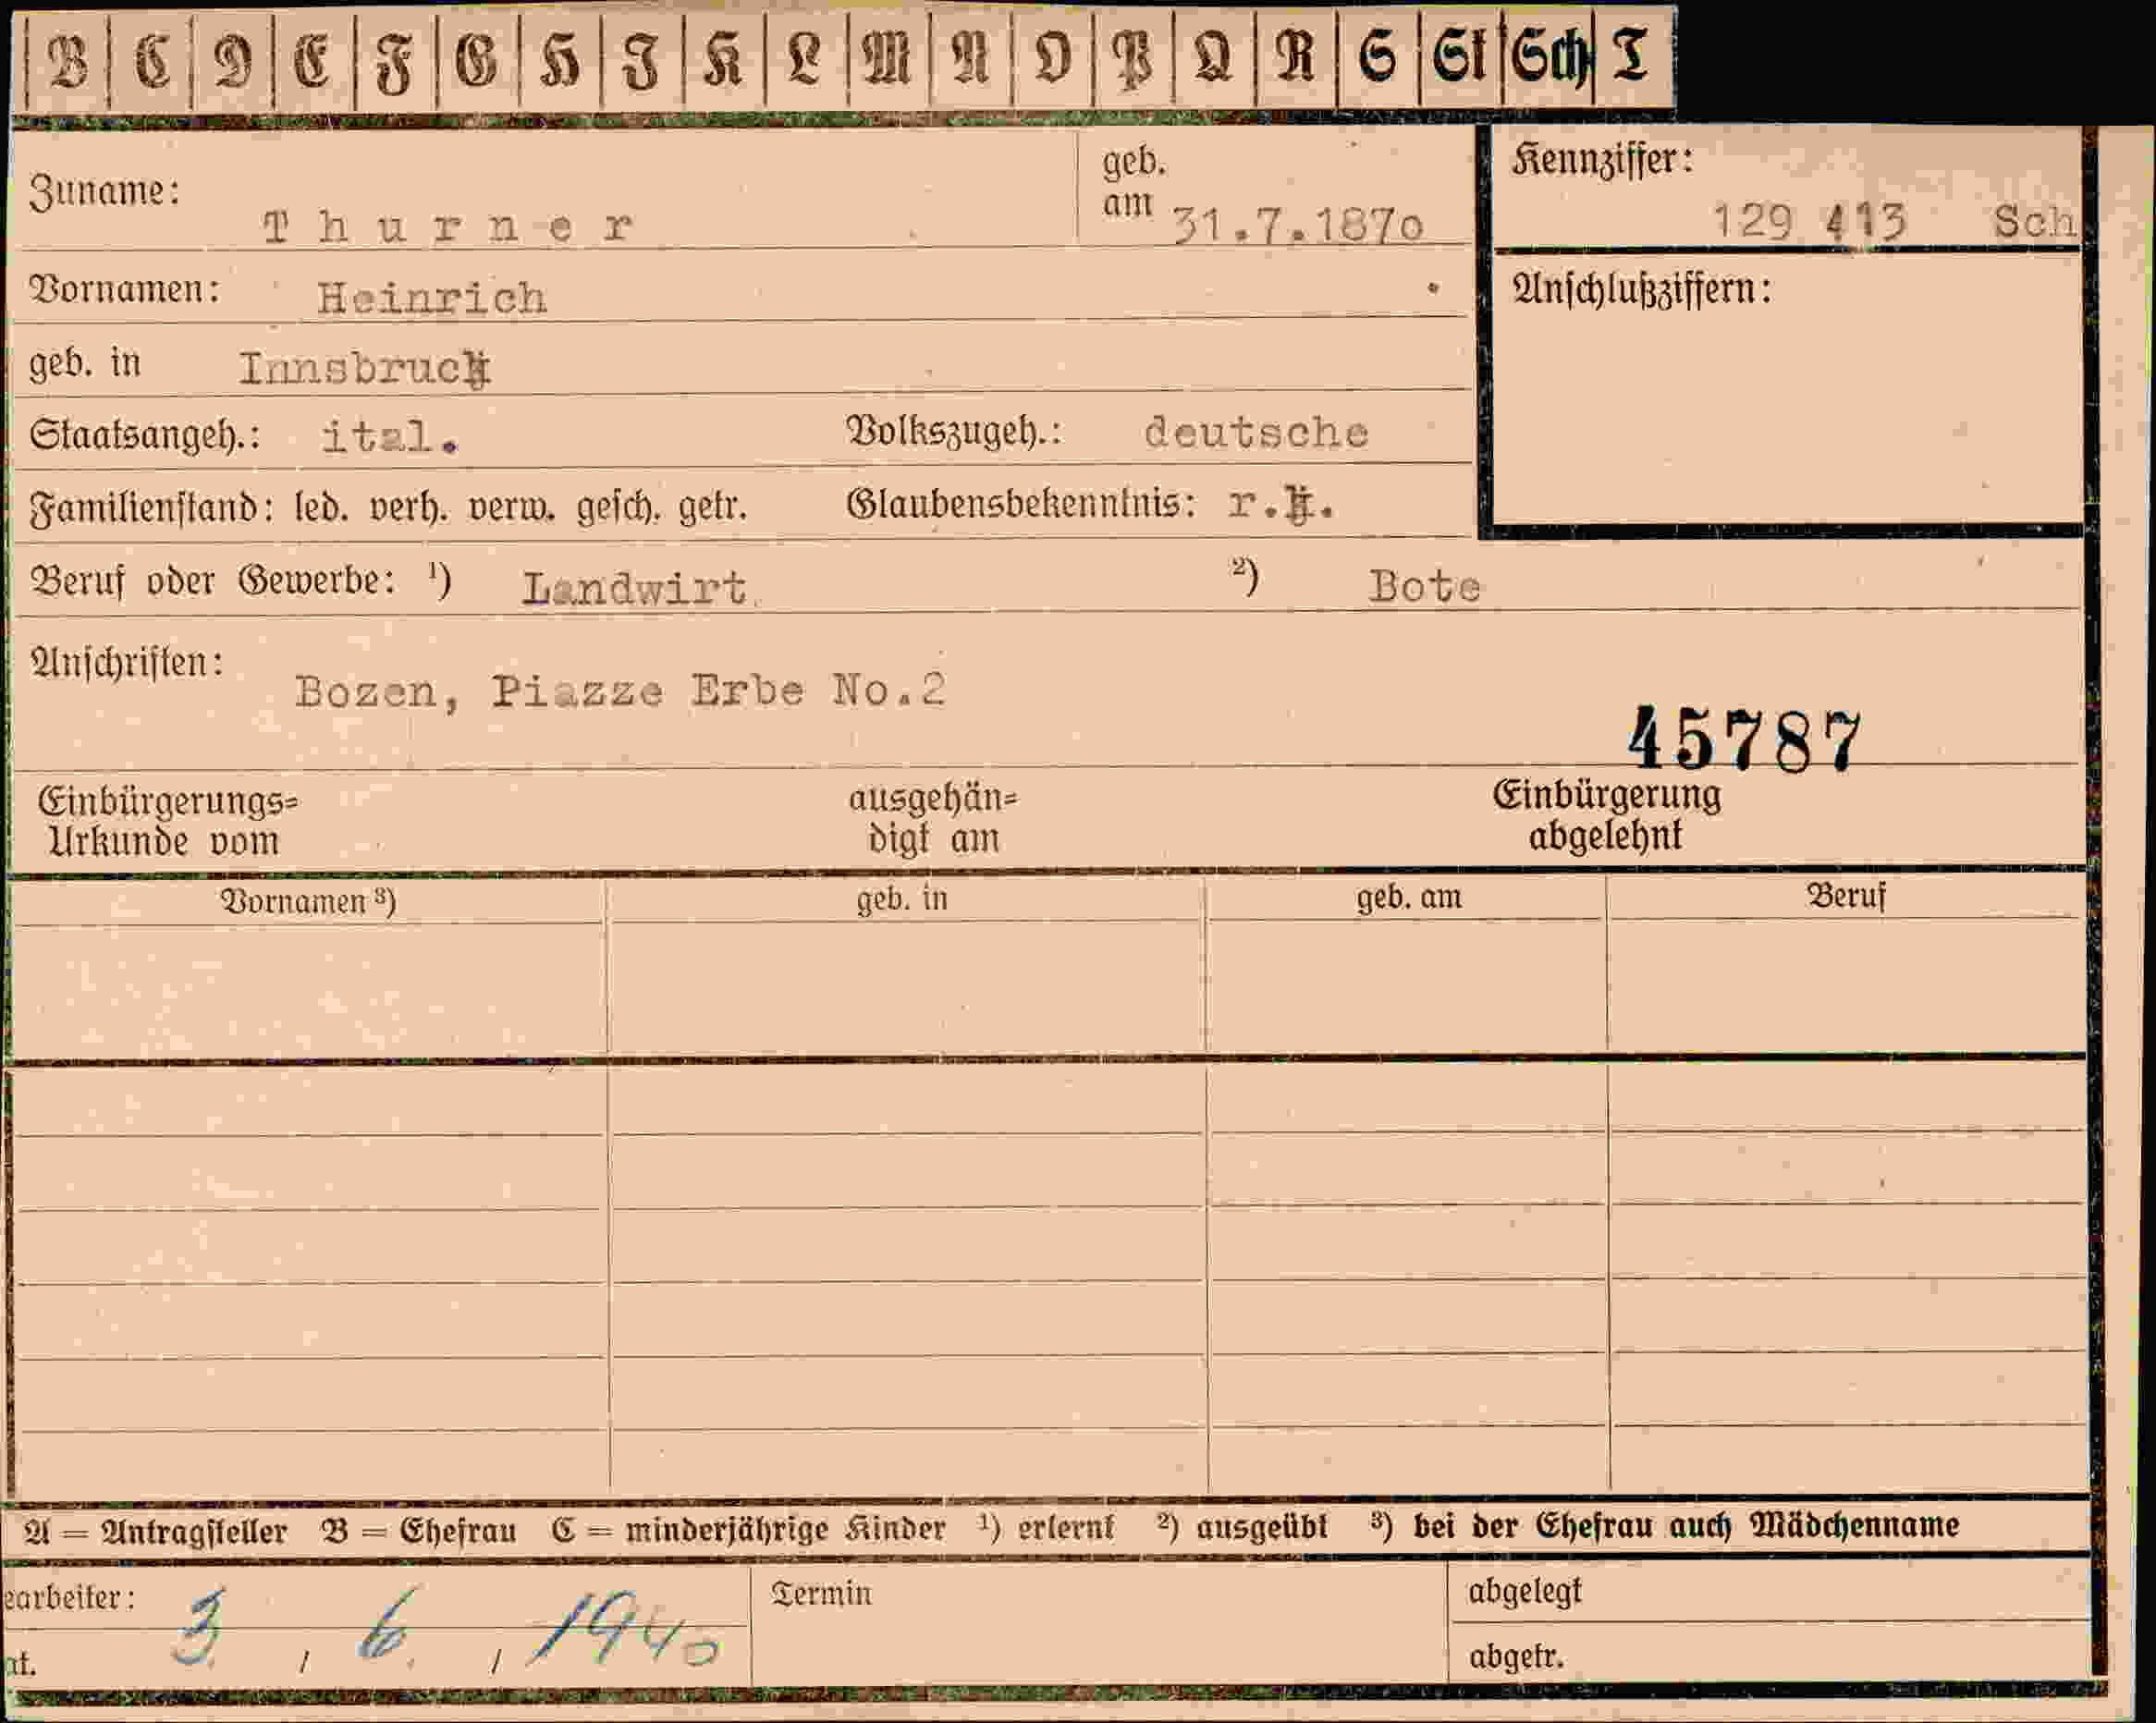 B C D E F G H J K L M N O P Q R S St Sch T
Zuname: Thurner
geb. am 31.7.1870
Kennziffer:
129 413 Sch
Vornamen: Heinrich
Anschlußziffern:
geb. in Innsbruck
Staatsangeh.: ital. Volkszugeh.: deutsche
Familienstand: led. verh. verw. gesch. getr. Glaubensbekenntnis: r.k.
Beruf oder Gewerbe: ¹) Landwirt ²) Bote
Anschriften: Bozen, Piazze Erbe No.2
45787
Einbürgerungs=
Urkunde vom
ausgehän=
digt am
Einbürgerung
abgelehnt
Vornamen ³) geb. in geb. am Beruf
A = Antragsteller B = Ehefrau C = minderjährige Kinder ¹) erlernt ²) ausgeübt ³) bei der Ehefrau auch Mädchenname
earbeiter:
at. 3. / 6. / 1940
Termin
abgelegt
abgetr.